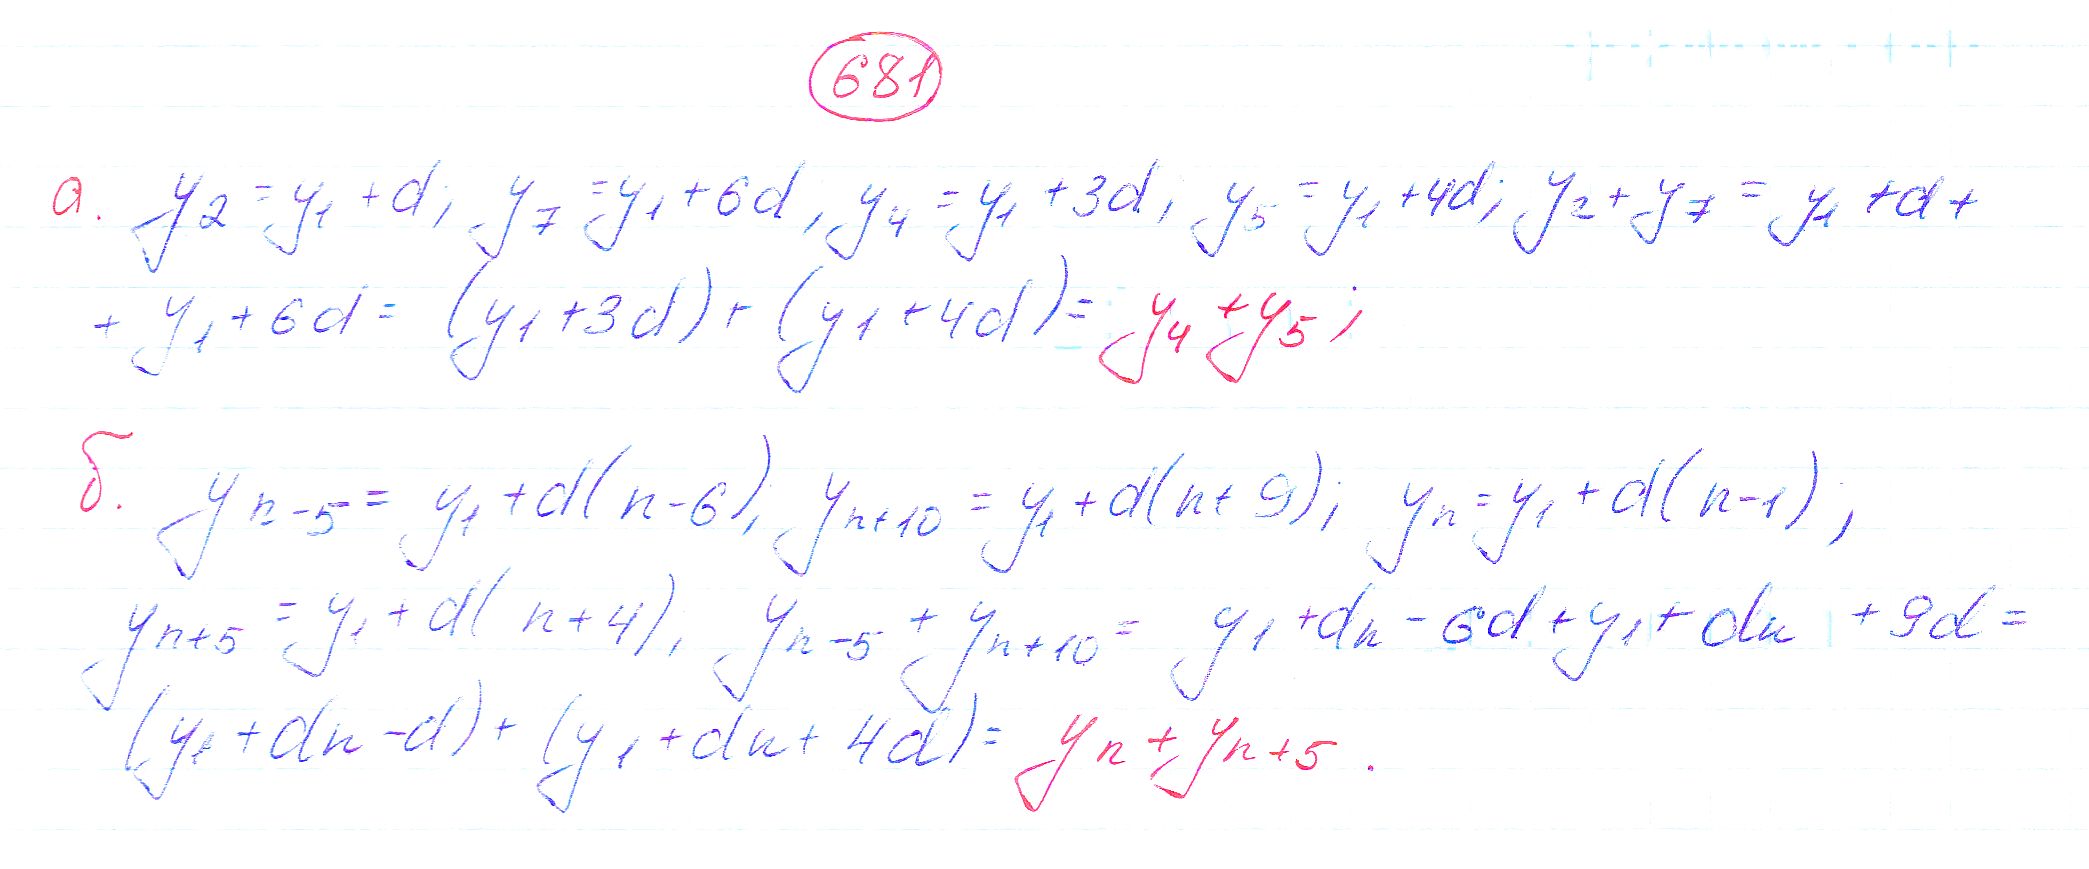 681
а. y₂ = y₁ + d; y₇ = y₁ + 6d; y₄ = y₁ + 3d; y₅ = y₁ + 4d; y₂ + y₇ = y₁ + d +
+ y₁ + 6d = (y₁ + 3d) + (y₁ + 4d) = y₄ + y₅;
б. yₙ₋₅ = y₁ + d(n - 6); yₙ₊₁₀ = y₁ + d(n + 9); yₙ = y₁ + d(n - 1);
yₙ₊₅ = y₁ + d(n + 4); yₙ₋₅ + yₙ₊₁₀ = y₁ + dn - 6d + y₁ + dn + 9d =
(y₁ + dn - d) + (y₁ + dn + 4d) = yₙ + yₙ₊₅.